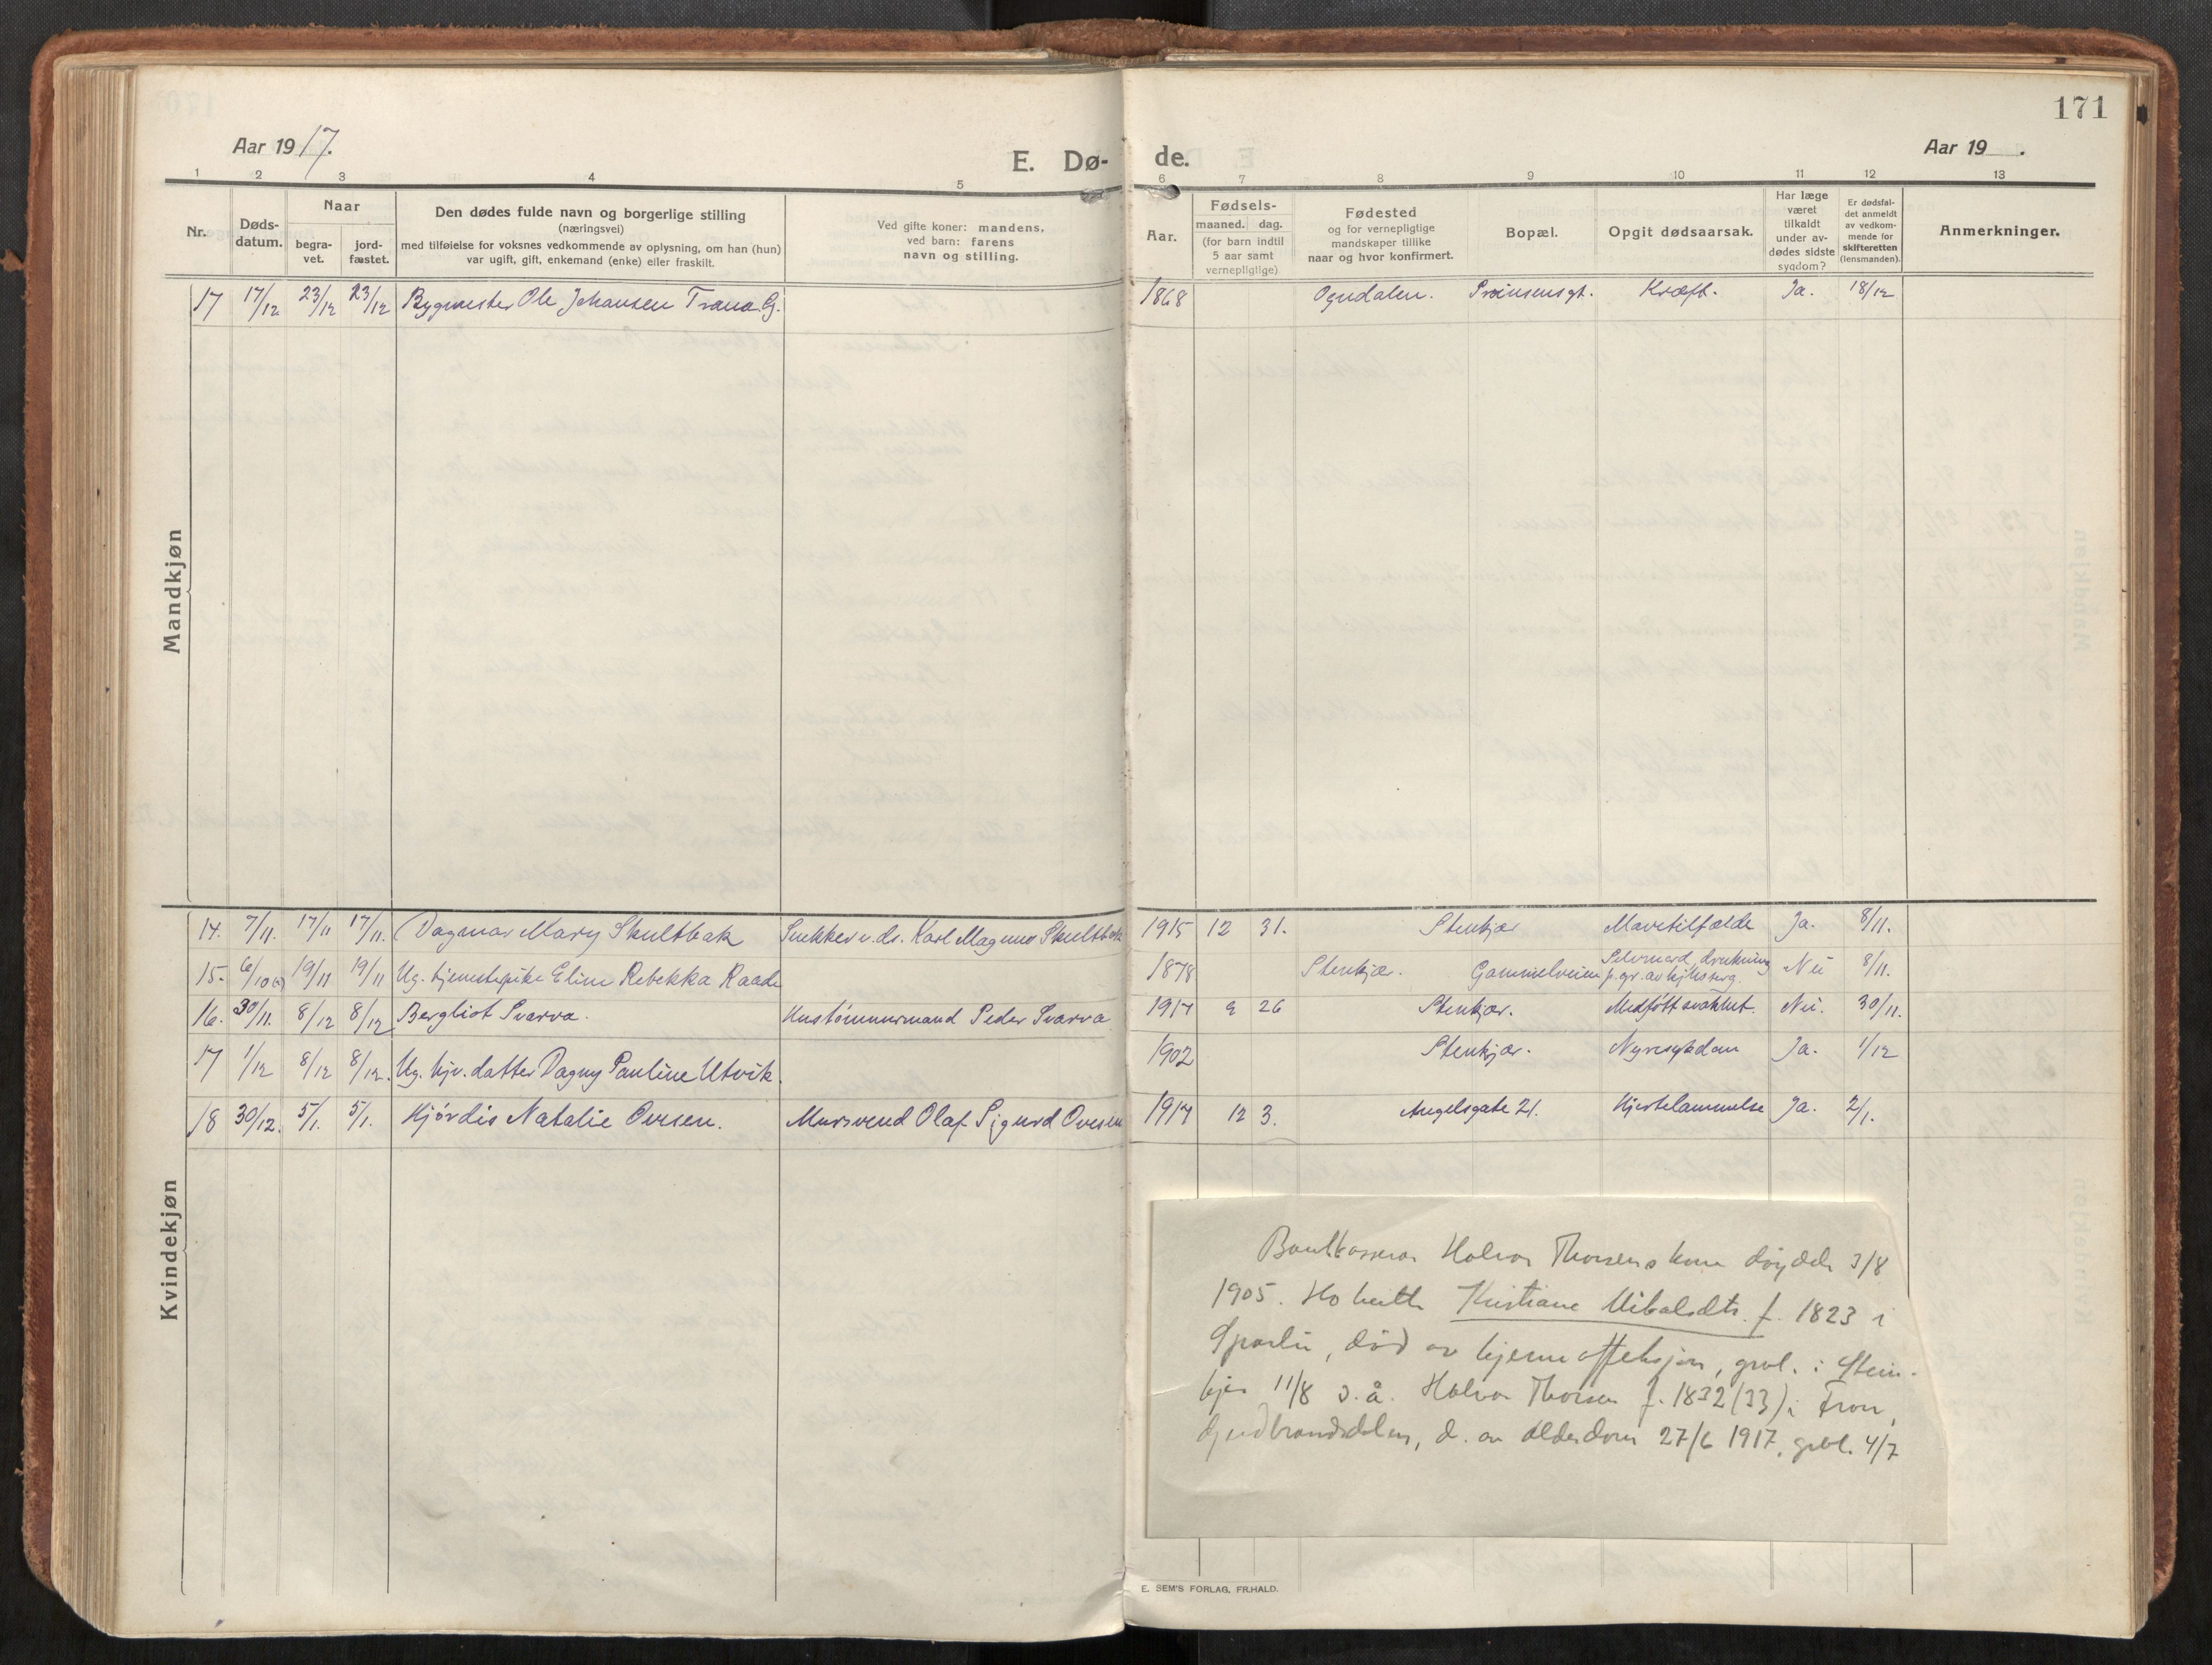 171
Aar 1917.
E. Dø-
de.
Aar 19 .
1 2 3 4 5 6 7 8 9 10 11 12 13
Nr.
Døds-
datum.
Naar
begra-
vet.
jord-
fæstet.
Den dødes fulde navn og borgerlige stilling
(næringsvei)
med tilføielse for voksnes vedkommende av oplysning, om han (hun)
var ugift, gift, enkemand (enke) eller fraskilt.
Ved gifte koner: mandens,
ved barn: farens
navn og stilling.
Aar.
Fødsels-
maaned. dag.
(for barn indtil
5 aar samt
vernepligtige)
Fødested
og for vernepligtige
mandskaper tillike
naar og hvor konfirmert.
Bopæl.
Opgit dødsaarsak.
Har læge
været
tilkaldt
under av-
dødes sidste
sygdom?
Er dødsfal-
det anmeldt
av vedkom-
mende for
skifteretten
(lensmanden).
Anmerkninger.
Mandkjøn
17 17/12 23/12 23/12 Bygmester Ole Johansen Trana. G. 1868 Ogndalen. Prinsensgt. Kræft. Ja. 18/12
Kvindekjøn
14. 7/11. 17/11 17/11. Dagmar Mary Skultbak Snekkersv.ds. Karl Magnus Skultbak 1915 12 31. Stenkjær Mavetilfælde Ja. 8/11.
15. 6/10 19/11 19/11 Ug. tjenestepike Eline Rebekka Raade 1878 Stenkjær. Gammelveien Selvmord, drukning
p. gr. av Nei 8/11.
16. 30/11. 8/12 8/12 Bergliot Svarva. Hustømmermand Peder Svarva 1917 9 26 Stenkjær. Medfødt svakhet. Nei. 30/11.
17 1/12 8/12 8/12. Ug. hjv. datter Dagny Pauline Utvik. 1902 Stenkjær. Nyresykdom Ja. 1/12
18 30/12. 5/1. 5/1. Hjørdis Natalie Ovesen. Mursvend Olaf Sigurd Ovesen 1917 12 3. Angelsgate 21. Hjertelammelse Ja. 2/1.
Bankkasserar Halvor Thorsens kone døydde 3/8
1905. Ho heitte Kristiane Mikalsdtr. f. 1823 i
Sparbu, død av hjerneaffeksjon, gravl. i Stein-
kjer 11/8 s. å. Halvor Thorsen f. 1832 (33) i Fron,
Gudbrandsdalen, d. av alderdom 27/6 1917, gravl. 4/7
E. SEM'S FORLAG, FR.HALD.